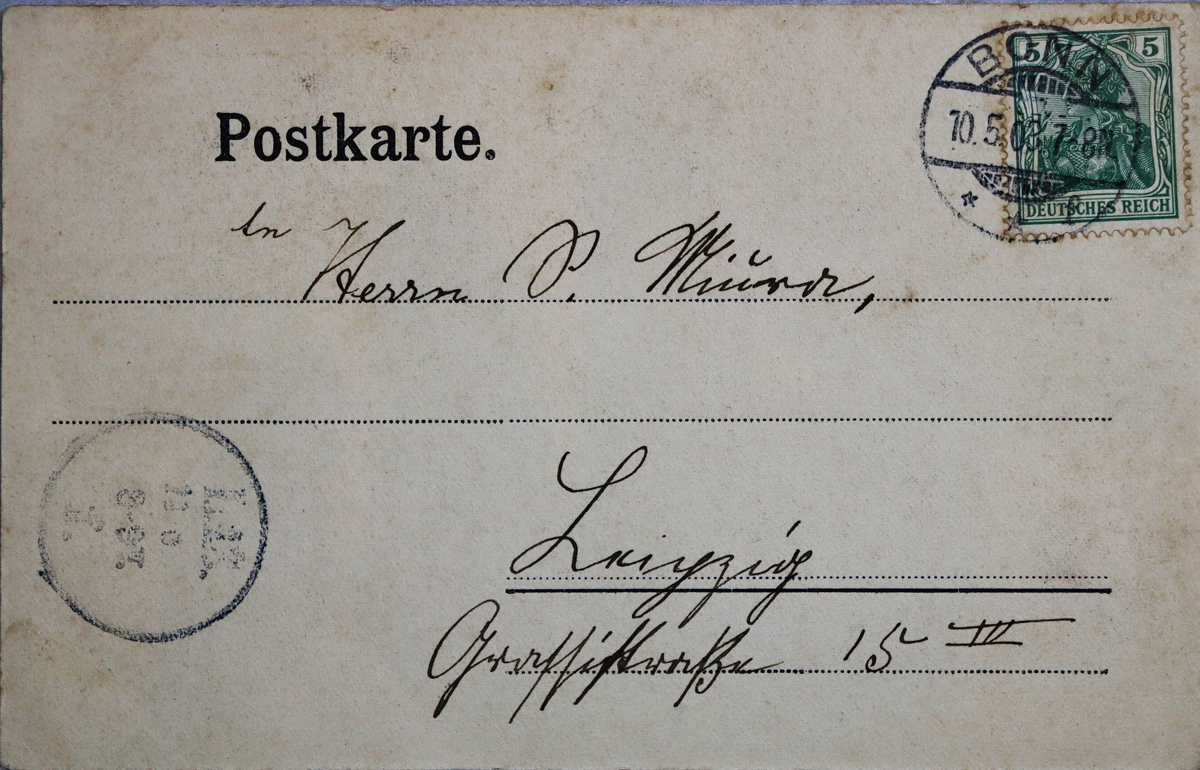 Postkarte.
BONN
10.5.03. 7-8N
5 5
DEUTSCHES REICH
An Herrn S. Miura,
Leipzig
Grassistraße 15 IV